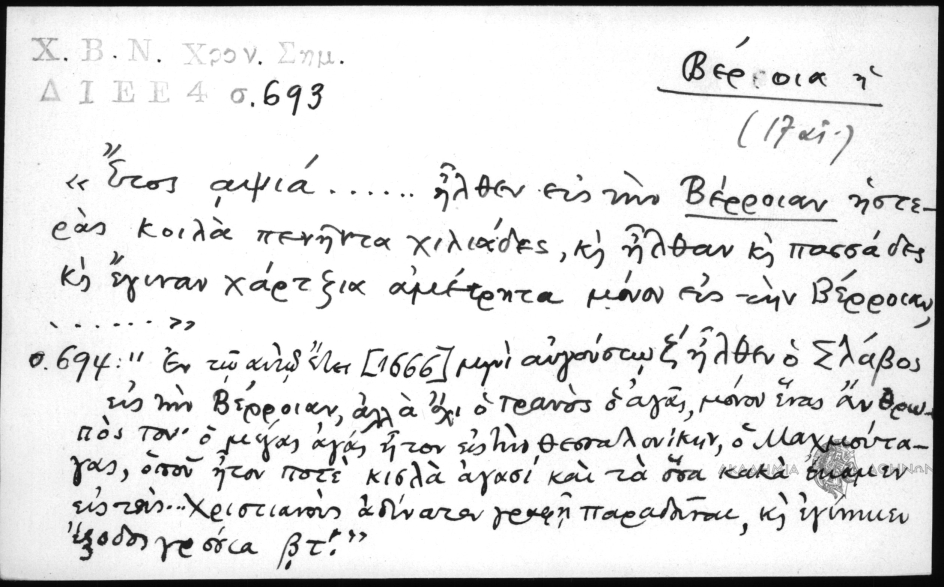 Χ.Β.Ν. Χρον. Σημ.
ΔΙΕΕ4 σ.693
Βέρροια ἡ
(17 αἰ.)
«Ἔτος αψιά ...... ἦλθεν εἰς τὴν Βέρροιαν ἡστε-
ρὰς κοιλὰ πενῆντα χιλιάδες, κὴ ἦλθαν κὴ πασσάδες
κὴ ἔγιναν χάρτξια ἀμέτρητα μόνον εἰς τὴν Βέρροιαν,
......»
σ.694: "Ἐν τῷ αὐτῷ ἔτει [1666] μηνὶ αὐγούστῳ ξ´ ἦλθεν ὁ Σλάβος
εἰς τὴν Βέρροιαν, ἀλλὰ ὄχι ὁ τρανὸς ὁ ἀγᾶς, μόνον ἕνας ἄνθρω-
πὸς του· ὁ μέγας ἀγάς ἦτον εἰς τὴν Θεσσαλονίκην, ὁ Μαχμούτα-
γας, ὁποῦ ἦτον ποτὲ κισλὰ ἀγασί καὶ τὰ ὅσα κακὰ ἔκαμεν
εἰς τοὺς... Χριστιανοὺς ἀδύνατον γραφῇ παραδοῦναι, κὴ ἐγίνηκεν
ἔξοδος γρόσια βτ´."
ΑΚΑΔΗΜΙΑ ΑΘΗΝΩΝ